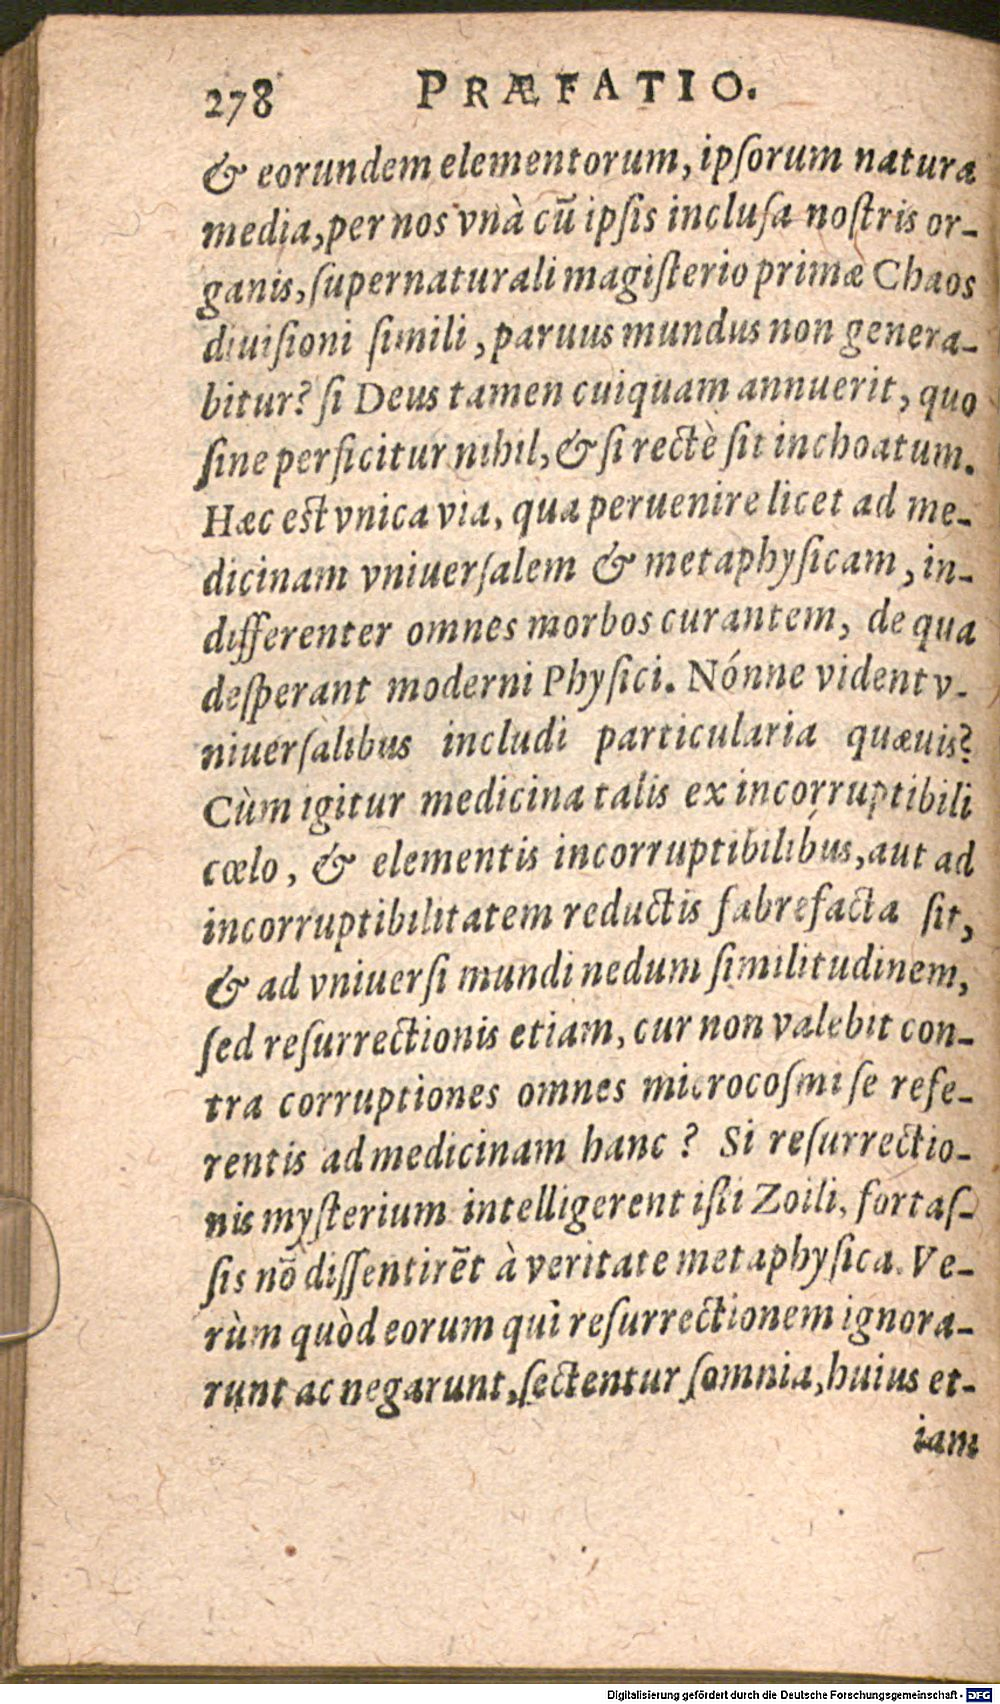 278 PRÆFATIO.
& eorundem elementorum, ipſorum natura
media, per nos vnà cū ipſis incluſa noſtris or-
ganis, ſupernaturali magiſterio primæ Chaos
diuiſioni ſimili, paruus mundus non genera-
bitur? ſi Deus tamen cuiquam annuerit, quo
ſine perficitur nihil, & ſi rectè ſit inchoatum.
Hæc eſt vnica via, qua peruenire licet ad me-
dicinam vniuerſalem & metaphyſicam, in-
differenter omnes morbos curantem, de qua
deſperant moderni Phyſici. Nónne vident v-
niuerſalibus includi particularia quæuis?
Cùm igitur medicina talis ex incorruptibili
cœlo, & elementis incorruptibilibus, aut ad
incorruptibilitatem reductis fabrefacta ſit,
& ad vniuerſi mundi nedum ſimilitudinem,
ſed reſurrectionis etiam, cur non valebit con-
tra corruptiones omnes microcoſmi ſe refe-
rentis ad medicinam hanc? Si reſurrectio-
nis myſterium intelligerent iſti Zoili, fortaſ-
ſis nō diſſentirēt à veritate metaphyſica. Ve-
rùm quòd eorum qui reſurrectionem ignora-
runt ac negarunt, ſectentur ſomnia, huius et-
iam
Digitalisierung gefördert durch die Deutsche Forschungsgemeinschaft - DFG